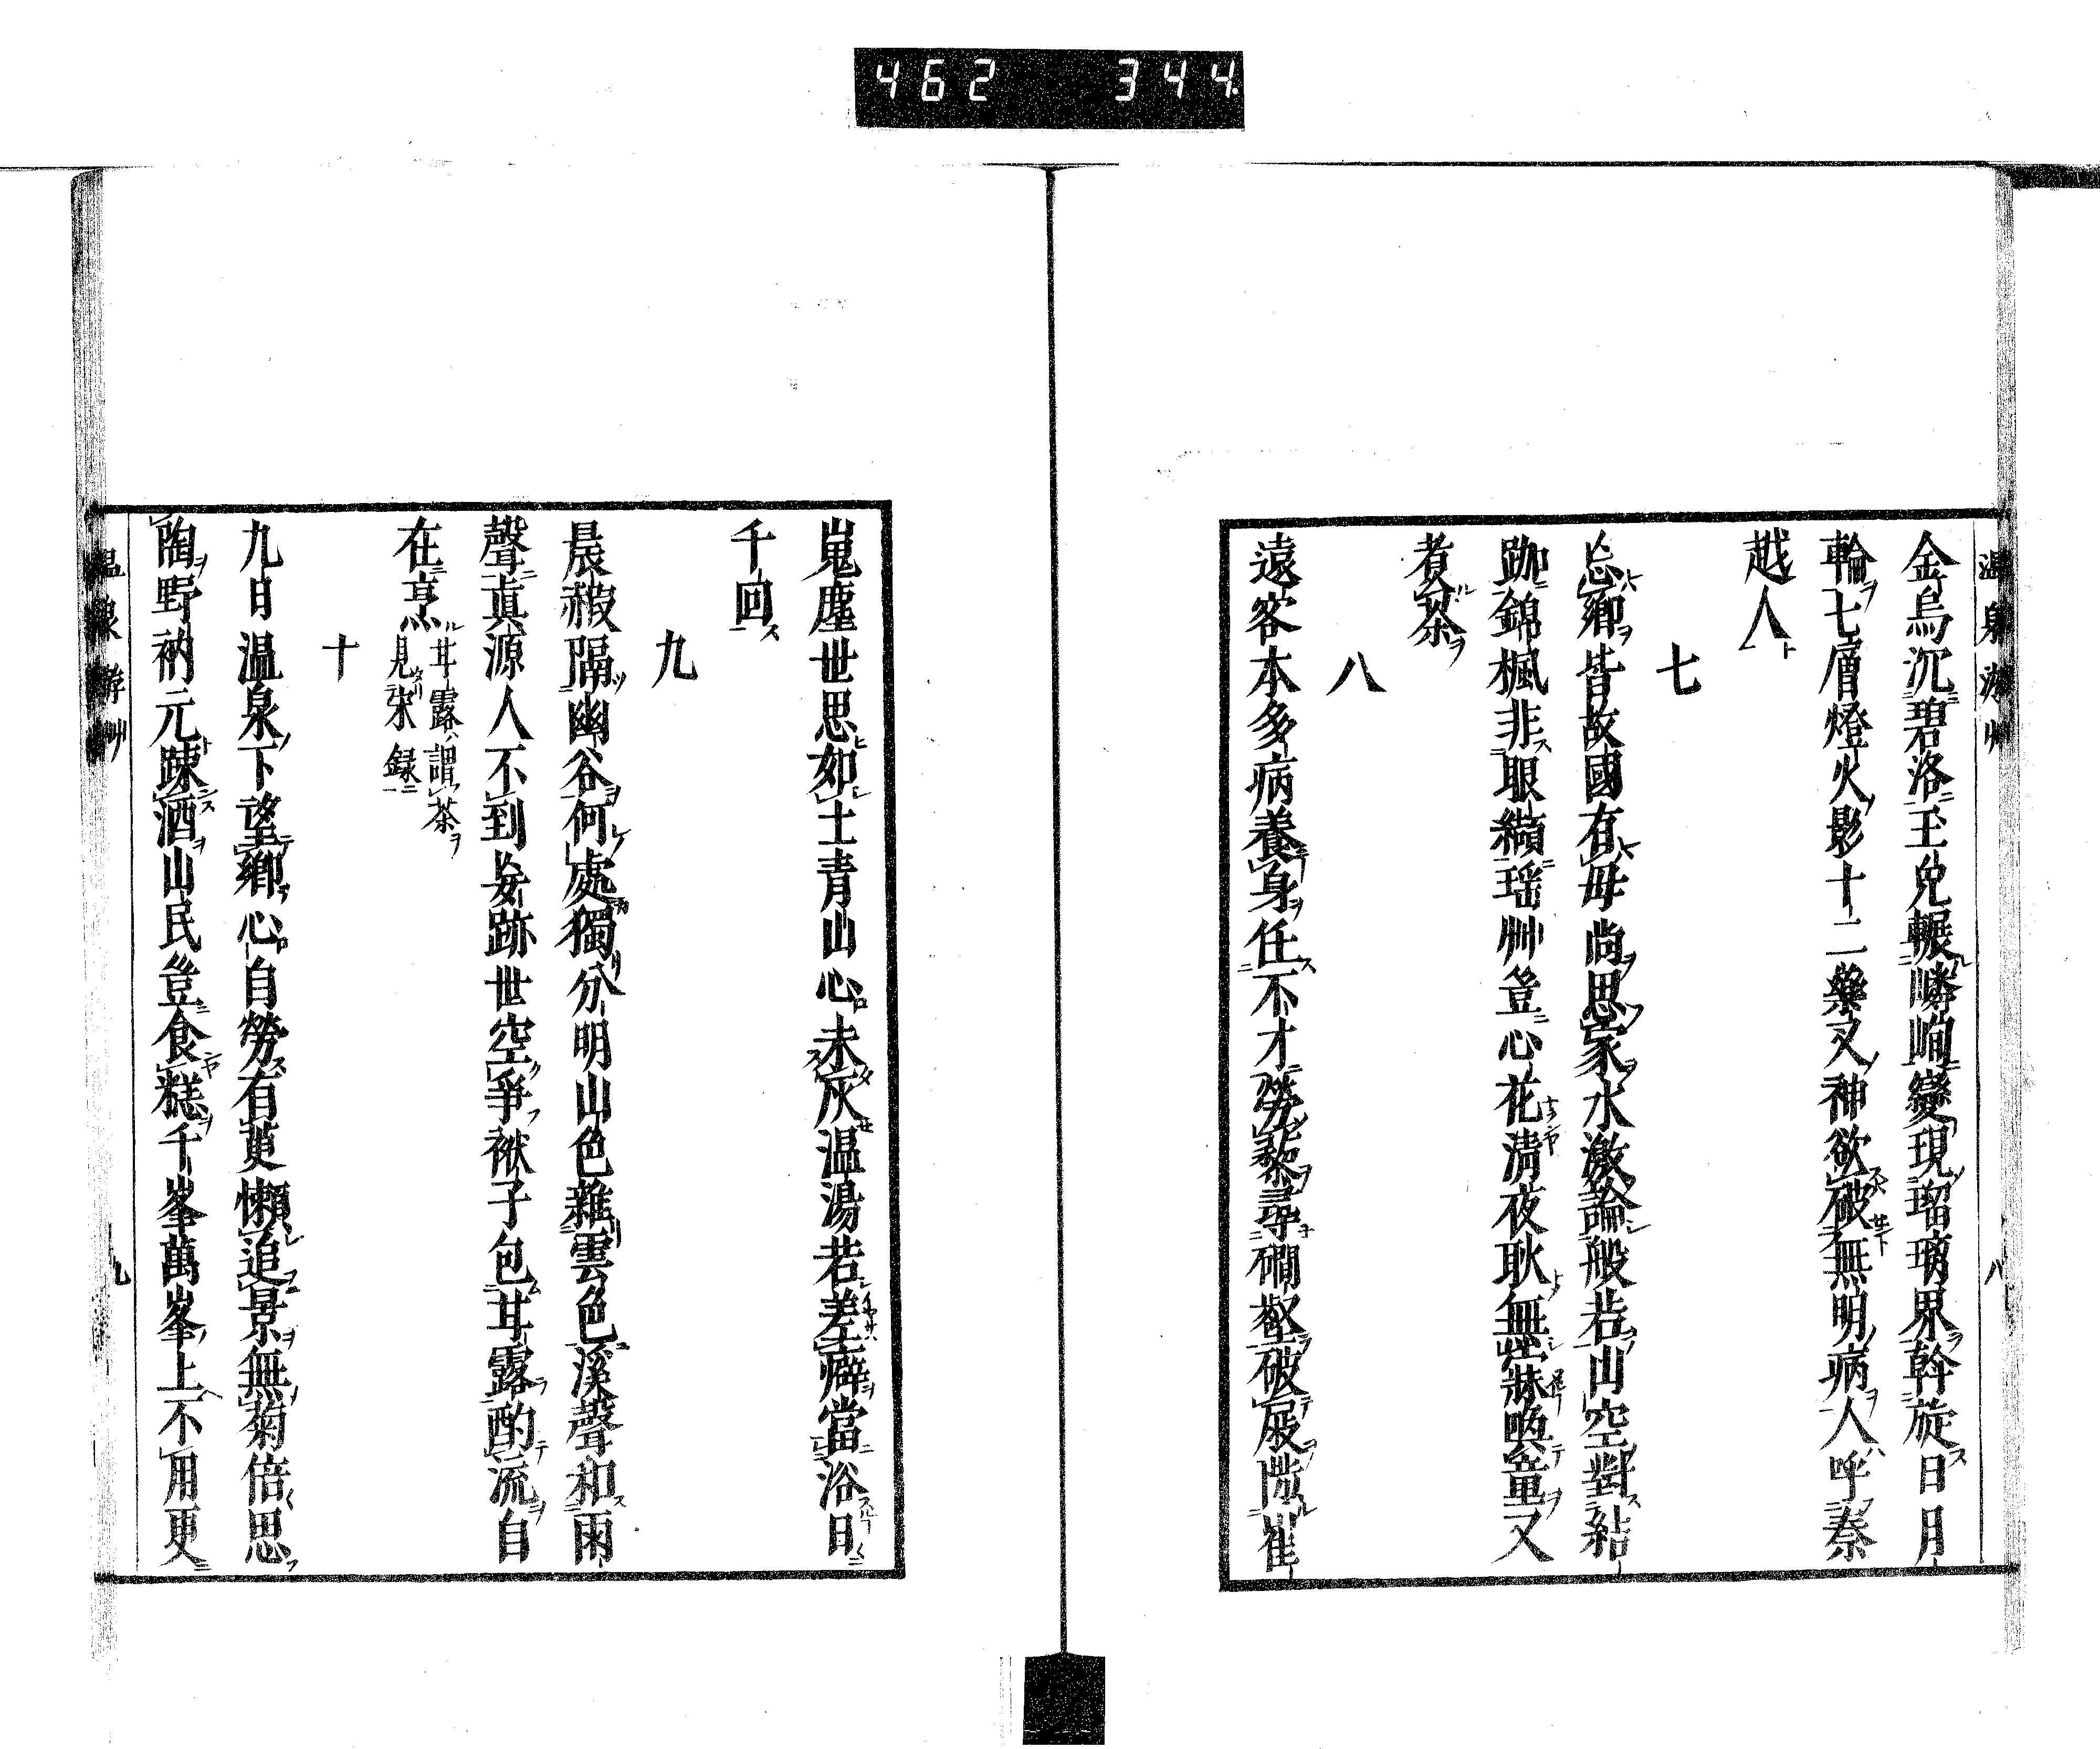 462 344
温泉游艸
八
金烏沉碧洛玉兔輾嶙峋變現瑠璃界斡旋日月
輪七層燈火影十二藥叉神欲破無明病人呼秦
越人
七
忘鄉皆故國有母尚思家水激論般若山空對結
跏錦楓非眼纈瑶艸豈心花淸夜耿無寐喚童又
煮茶
八
遠客本多病養身任不才勞藜尋磵壑破屐𨻶崔
嵬塵世思如土青山心未灰温湯若差癖當浴日
千回
九
晨報隔幽谷何處獨分明山色雜雲色溪聲和雨
聲眞源人不到妄跡世空爭袱子包甘露酌流自
在烹
甘露謂茶
見宋錄
十
九日温泉下望鄉心自勞有萸懶追景無菊倍思
陶野衲元疎酒山民豈食糕千峯萬峯上不用更
温泉游艸
九